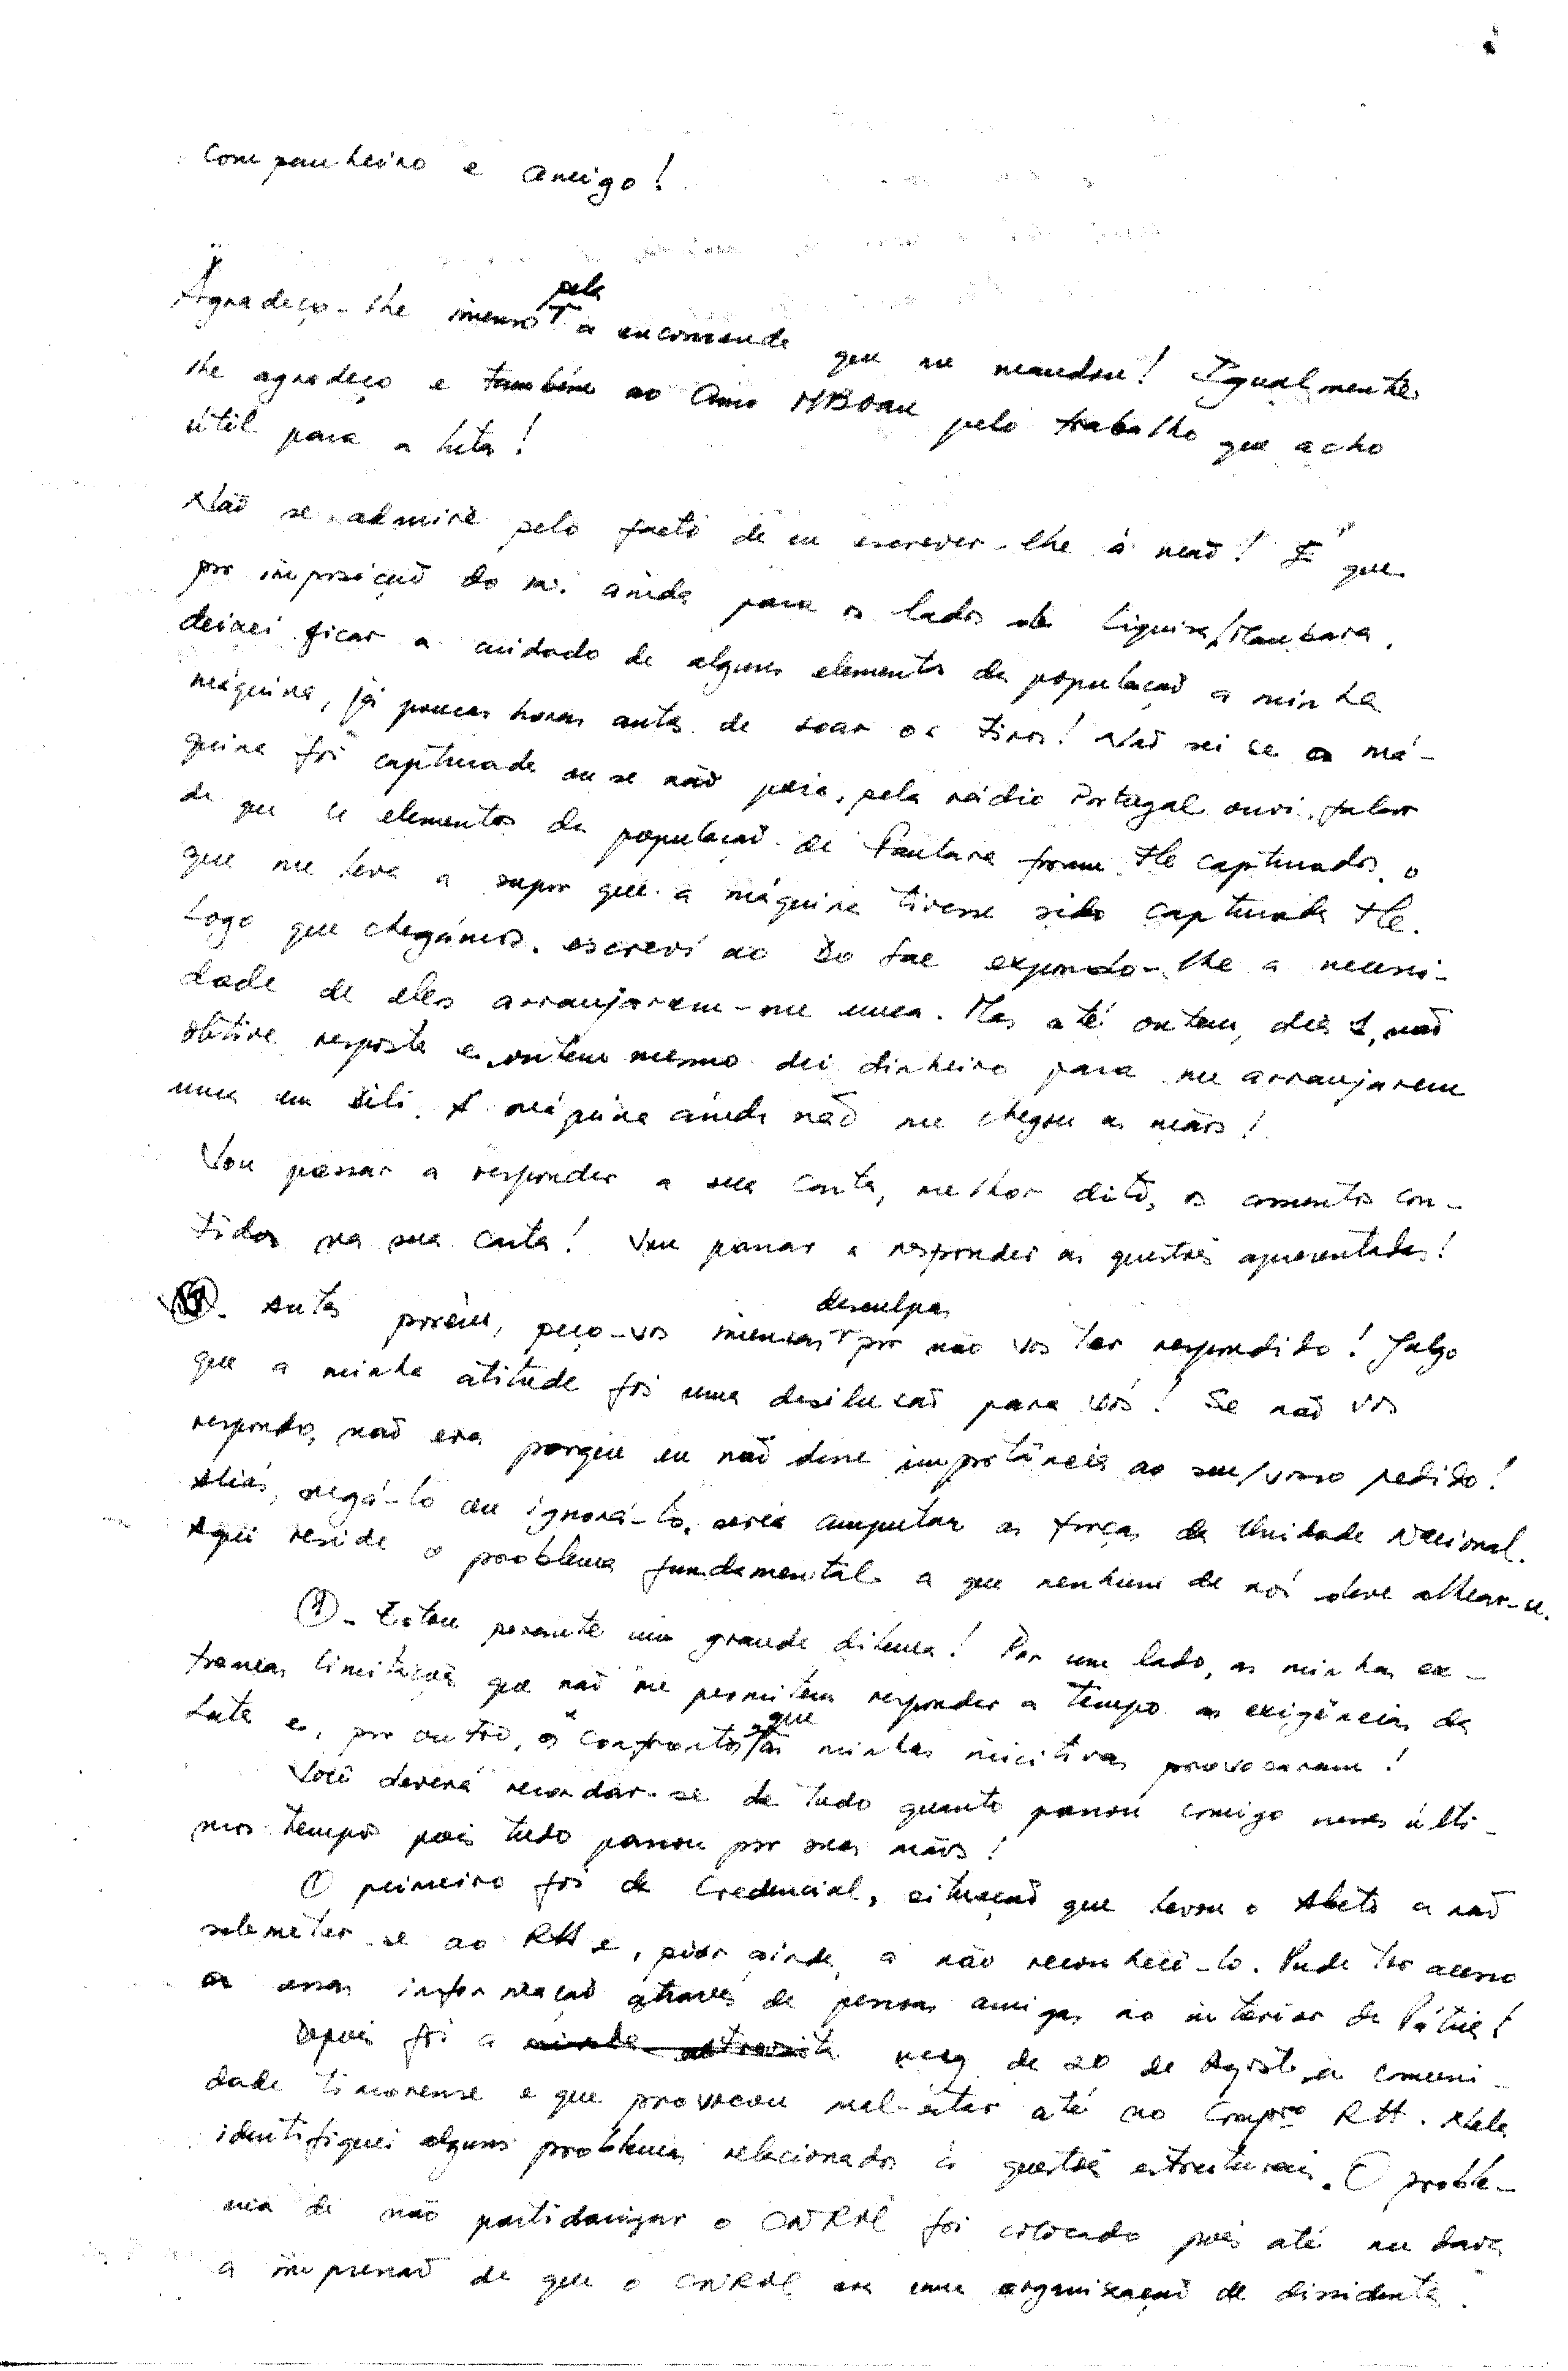 Companheiro e amigo!
pela
Agradeço-lhe imenso a encomenda que me mandou! Igualmente
lhe agradeço e também ao Amo pelo trabalho que acho
útil para a luta!
Não se admire pelo facto de eu escrever-lhe à mão! É que
por imposição do ini. ainda para os lados de Liquiça/Maubara,
deixei ficar a cuidado de alguns elementos da população a minha
máquina, já poucas horas antes de soar os tiros! Não sei se a má-
quina foi capturada ou se não pois, pela rádio Portugal ouvi falar
de que os elementos da população de foram capturados, o
que me leva a supor que a máquina tivesse sido capturada
Logo que chegámos, escrevi ao expondo-lhe a necessi-
dade de eles arranjarem-me uma. Mas até ontem, dia não
obtive resposta e ontem mesmo dei dinheiro para me arranjarem
uma em Dili. A máquina ainda não me chegou às mãos!
Vou passar a responder a sua carta, melhor dito, os assuntos con-
tidos na sua carta! Vou passar a responder as questões apresentadas!
desculpas
Antes porém, peço-vos imensas por não vos ter respondido! Julgo
que a minha atitude foi uma desilusão para vós! Se não vos
respondo, não era porque eu não desse importância ao seu/vosso pedido!
Aliás, negá-lo ou ignorá-lo, seria amputar as forças da Unidade Nacional.
Aqui reside o problema fundamental a que nenhum de nós deve alhear-se.
① - Estou perante um grande dilema! Por um lado, as minhas ex-
tremas limitações que não me permitem responder a tempo as exigências da
Luta e, por outro, os confrontos que as minhas iniciativas provocaram!
Você deverá recordar-se de tudo quanto passou comigo nesses últi-
mos tempos pois tudo passou por suas mãos!
O primeiro foi da Credencial, situação que levou o Abeto a não
submeter-se ao RH e, pior ainda, a não reconhecê-lo. Pude ter acesso
a essas informação através de pessoas amigas no interior da Pátria!
Depois foi a msg de 20 de Agosto à comuni-
dade timorense e que provocou mal-estar até ao Compro RH. Nela
identifiquei alguns problemas relacionados às questões estruturais. O proble-
ma de não partidarizar o CNRM foi colocado pois até me dava
a impressão de que o CNRM era uma organização de dissidentes.